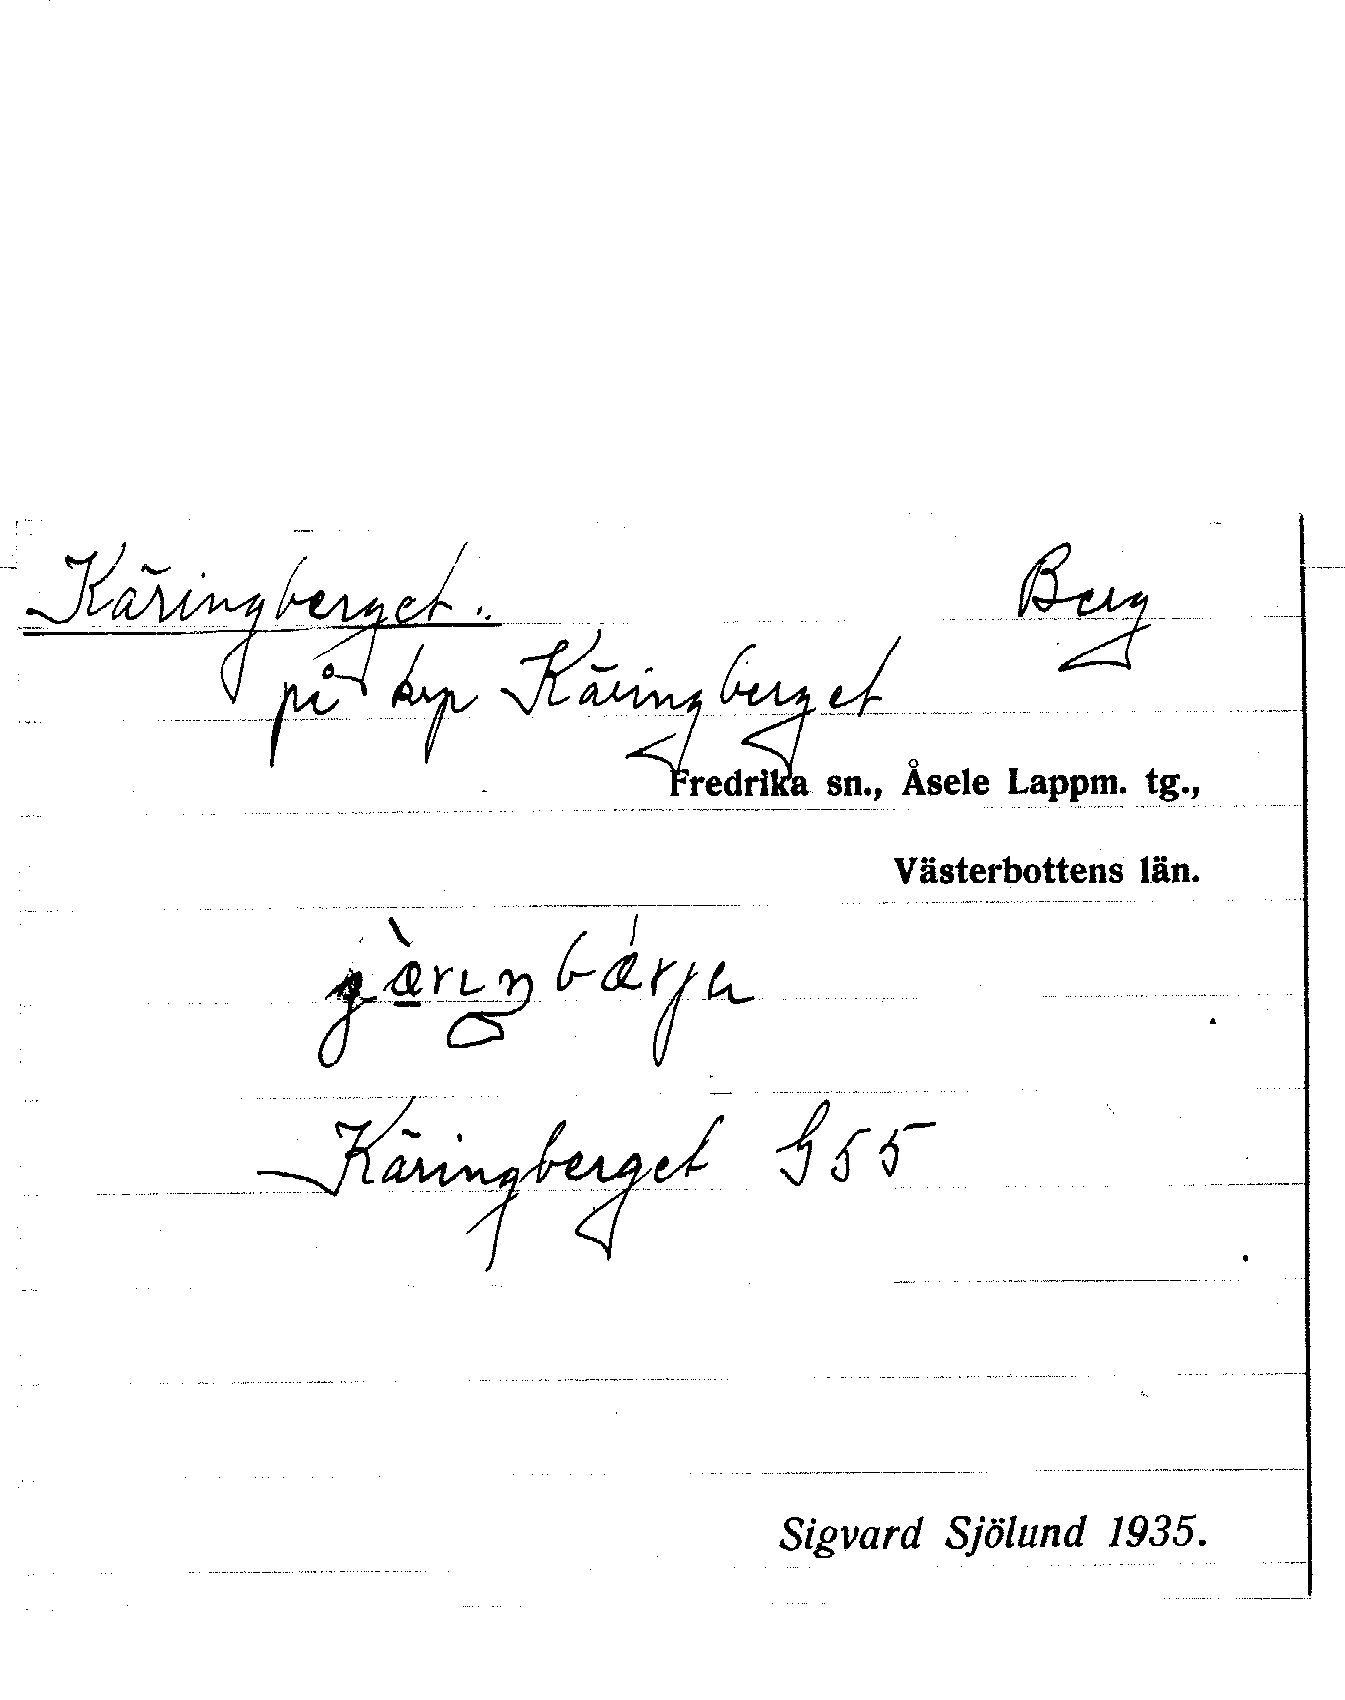 Käringberget. Berg
på krp Käringberget
Fredrika sn., Åsele Lappm. tg.,
Västerbottens län.
Käringberget G55
Sigvard Sjölund 1935.